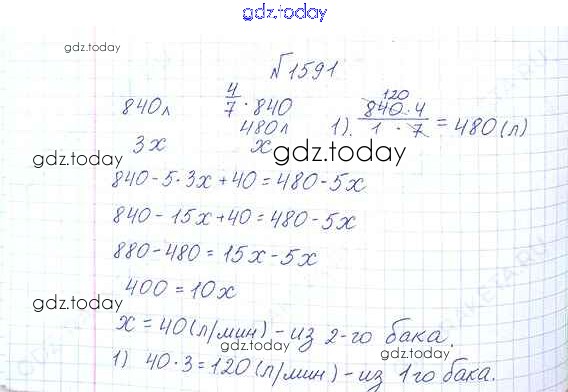 gdz.today
gdz.today
№1591
840л 4/7 · 840 1). 840 · 4 / 1 · 7 = 480 (л)
120
480л
3x x
gdz.today
gdz.today
840 - 5 · 3x + 40 = 480 - 5x
840 - 15x + 40 = 480 - 5x
880 - 480 = 15x - 5x
400 = 10x
gdz.today
gdz.today
x = 40 (л/мин) - из 2-го бака.
1) 40 · 3 = 120 (л/мин) - из 1го бака.